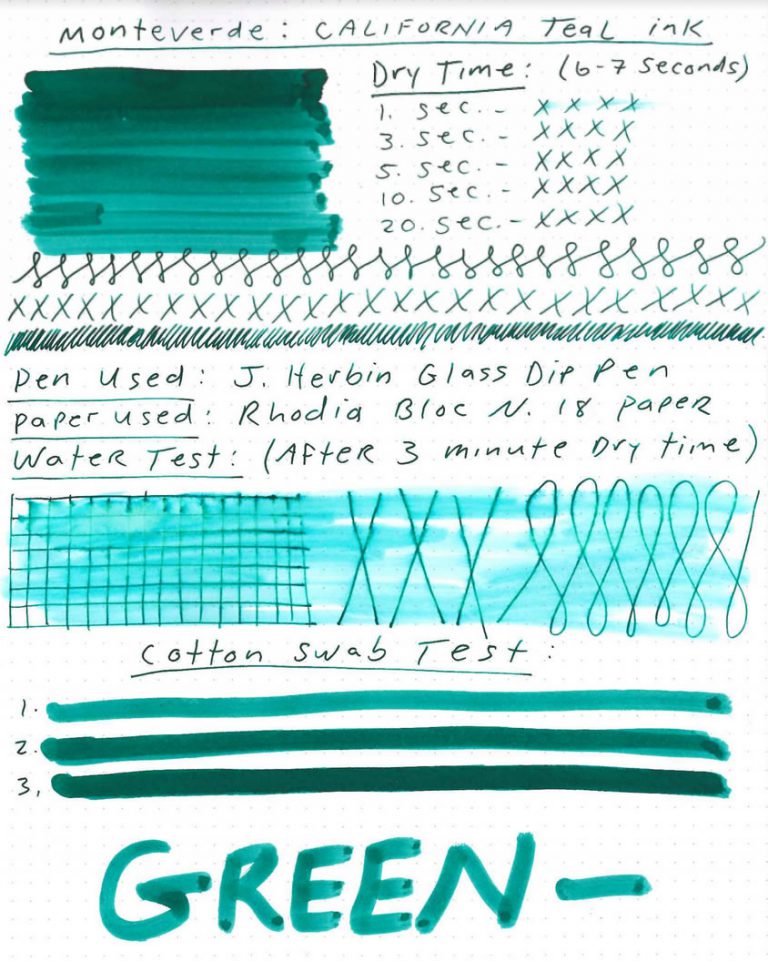 Monteverde: CALIFORNIA Teal ink
Dry Time: (6-7 seconds)
1. sec. - x x x x
3. sec. - x x x x
5. sec. - x x x x
10. sec. - x x x x
20. sec. - x x x x
X X X X X X X X X X X X X X X X X X X X X X X X X X X
Pen Used: J. Herbin Glass Dip Pen
Paper used: Rhodia Bloc N. 18 paper
Water Test: (After 3 minute Dry time)
X X X
Cotton Swab Test:
1.
2.
3.
GREEN-